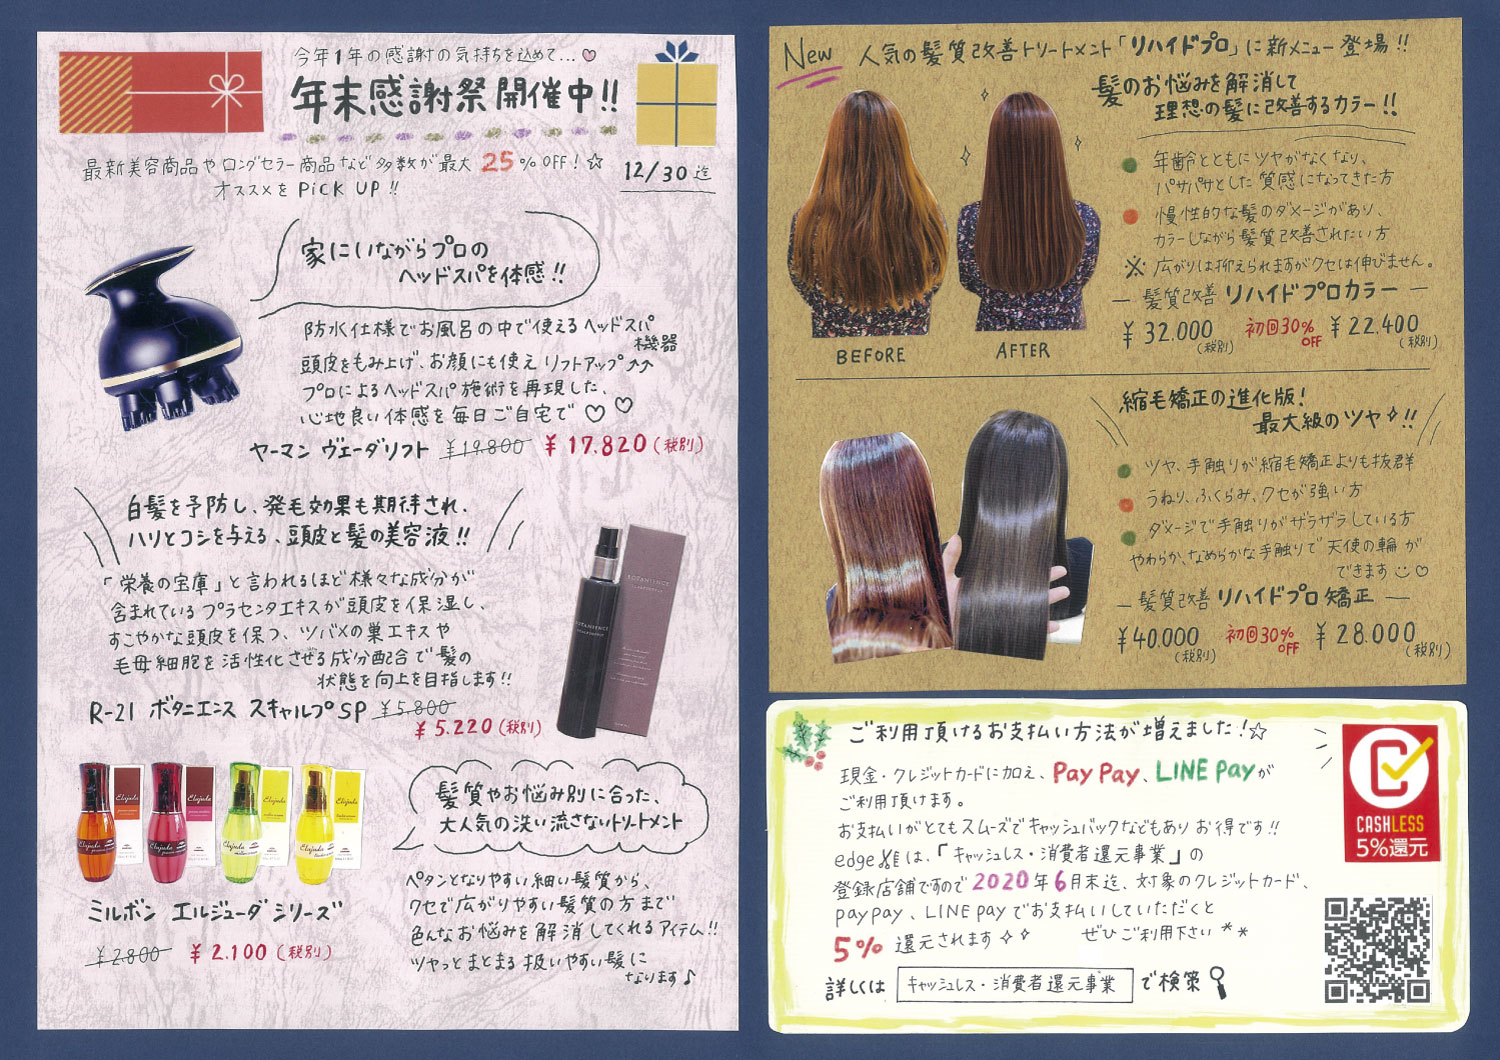 今年1年の感謝の気持ちを込めて…♡
年末感謝祭開催中!!
最新美容商品やロングセラー商品など多数が最大25%OFF!☆
オススメをPiCK UP!!
12/30迄
家にいながらプロの
ヘッドスパを体感!!
防水仕様でお風呂の中で使えるヘッドスパ
機器
頭皮をもみ上げ、お顔にも使えリフトアップ↑↑
プロによるヘッドスパ施術を再現した、
心地良い体感を毎日ご自宅で♡♡
ヤーマン ヴェーダリフト ¥19.800 ¥17.820(税別)
白髪を予防し、発毛効果も期待され、
ハリとコシを与える、頭皮と髪の美容液!!
「栄養の宝庫」と言われるほど様々な成分が
含まれているプラセンタエキスが頭皮を保湿し、
すこやかな頭皮を保つ、ツバメの巣エキスや
毛母細胞を活性化させる成分配合で髪の
状態を向上を目指します!!
R-21 ボタニエンス スキャルプSP ¥5.800
¥5.220(税別)
BOTANIENCE
BOTANIENCE
Elujuda
Elujuda
Elujuda
Elujuda
髪質やお悩み別に合った、
大人気の洗い流さないトリートメント
ミルボン エルジューダシリーズ
¥2.800 ¥2.100(税別)
ペタンとなりやすい細い髪質から、
クセで広がりやすい髪質の方まで
色んなお悩みを解消してくれるアイテム!!
ツヤっとまとまる扱いやすい髪に
なります♪
New 人気の髪質改善トリートメント「リハイドプロ」に新メニュー登場!!
髪のお悩みを解消して
理想の髪に改善するカラー!!
年齢とともにツヤがなくなり、
パサパサとした質感になってきた方
慢性的な髪のダメージがあり、
カラーしながら髪質改善されたい方
※広がりは抑えられますがクセは伸びません。
BEFORE AFTER
—髪質改善 リハイドプロカラー—
¥32.000(税別) 初回30%OFF ¥22.400(税別)
縮毛矯正の進化版!
最大級のツヤ✧!!
ツヤ、手触りが縮毛矯正よりも抜群
うねり、ふくらみ、クセが強い方
ダメージで手触りがザラザラしている方
やわらか、なめらかな手触りで天使の輪が
できます☺♡
—髪質改善 リハイドプロ矯正—
¥40.000(税別) 初回30%OFF ¥28.000(税別)
ご利用頂けるお支払い方法が増えました!☆
現金・クレジットカードに加え、PayPay、LINE Payが
ご利用頂けます。
お支払いがとてもスムーズでキャッシュバックなどもありお得です!!
edge XEは、「キャッシュレス・消費者還元事業」の
登録店舗ですので2020年6月末迄、対象のクレジットカード、
paypay、LINE payでお支払いしていただくと
5%還元されます✧✧ ぜひご利用下さい＊＊
詳しくは キャッシュレス・消費者還元事業 で検索
CASHLESS
5%還元